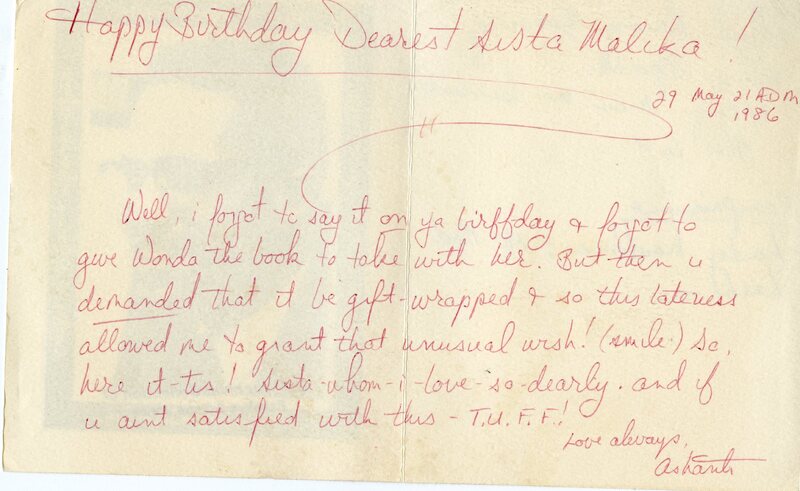 Happy Birthday Dearest Sista Malika!
29 May 21 ADM
1986
Well, i forgot to say it on ya birffday & forgot to
give Wonda the book to take with her. But then u
demanded that it be gift-wrapped & so this lateness
allowed me to grant that unusual wish! (smile.) So,
here it-tis! Sista-whom-i-love-so-dearly. and if
u aint satisfied with this - T.U.F.F.!
Love always,
Ashanti